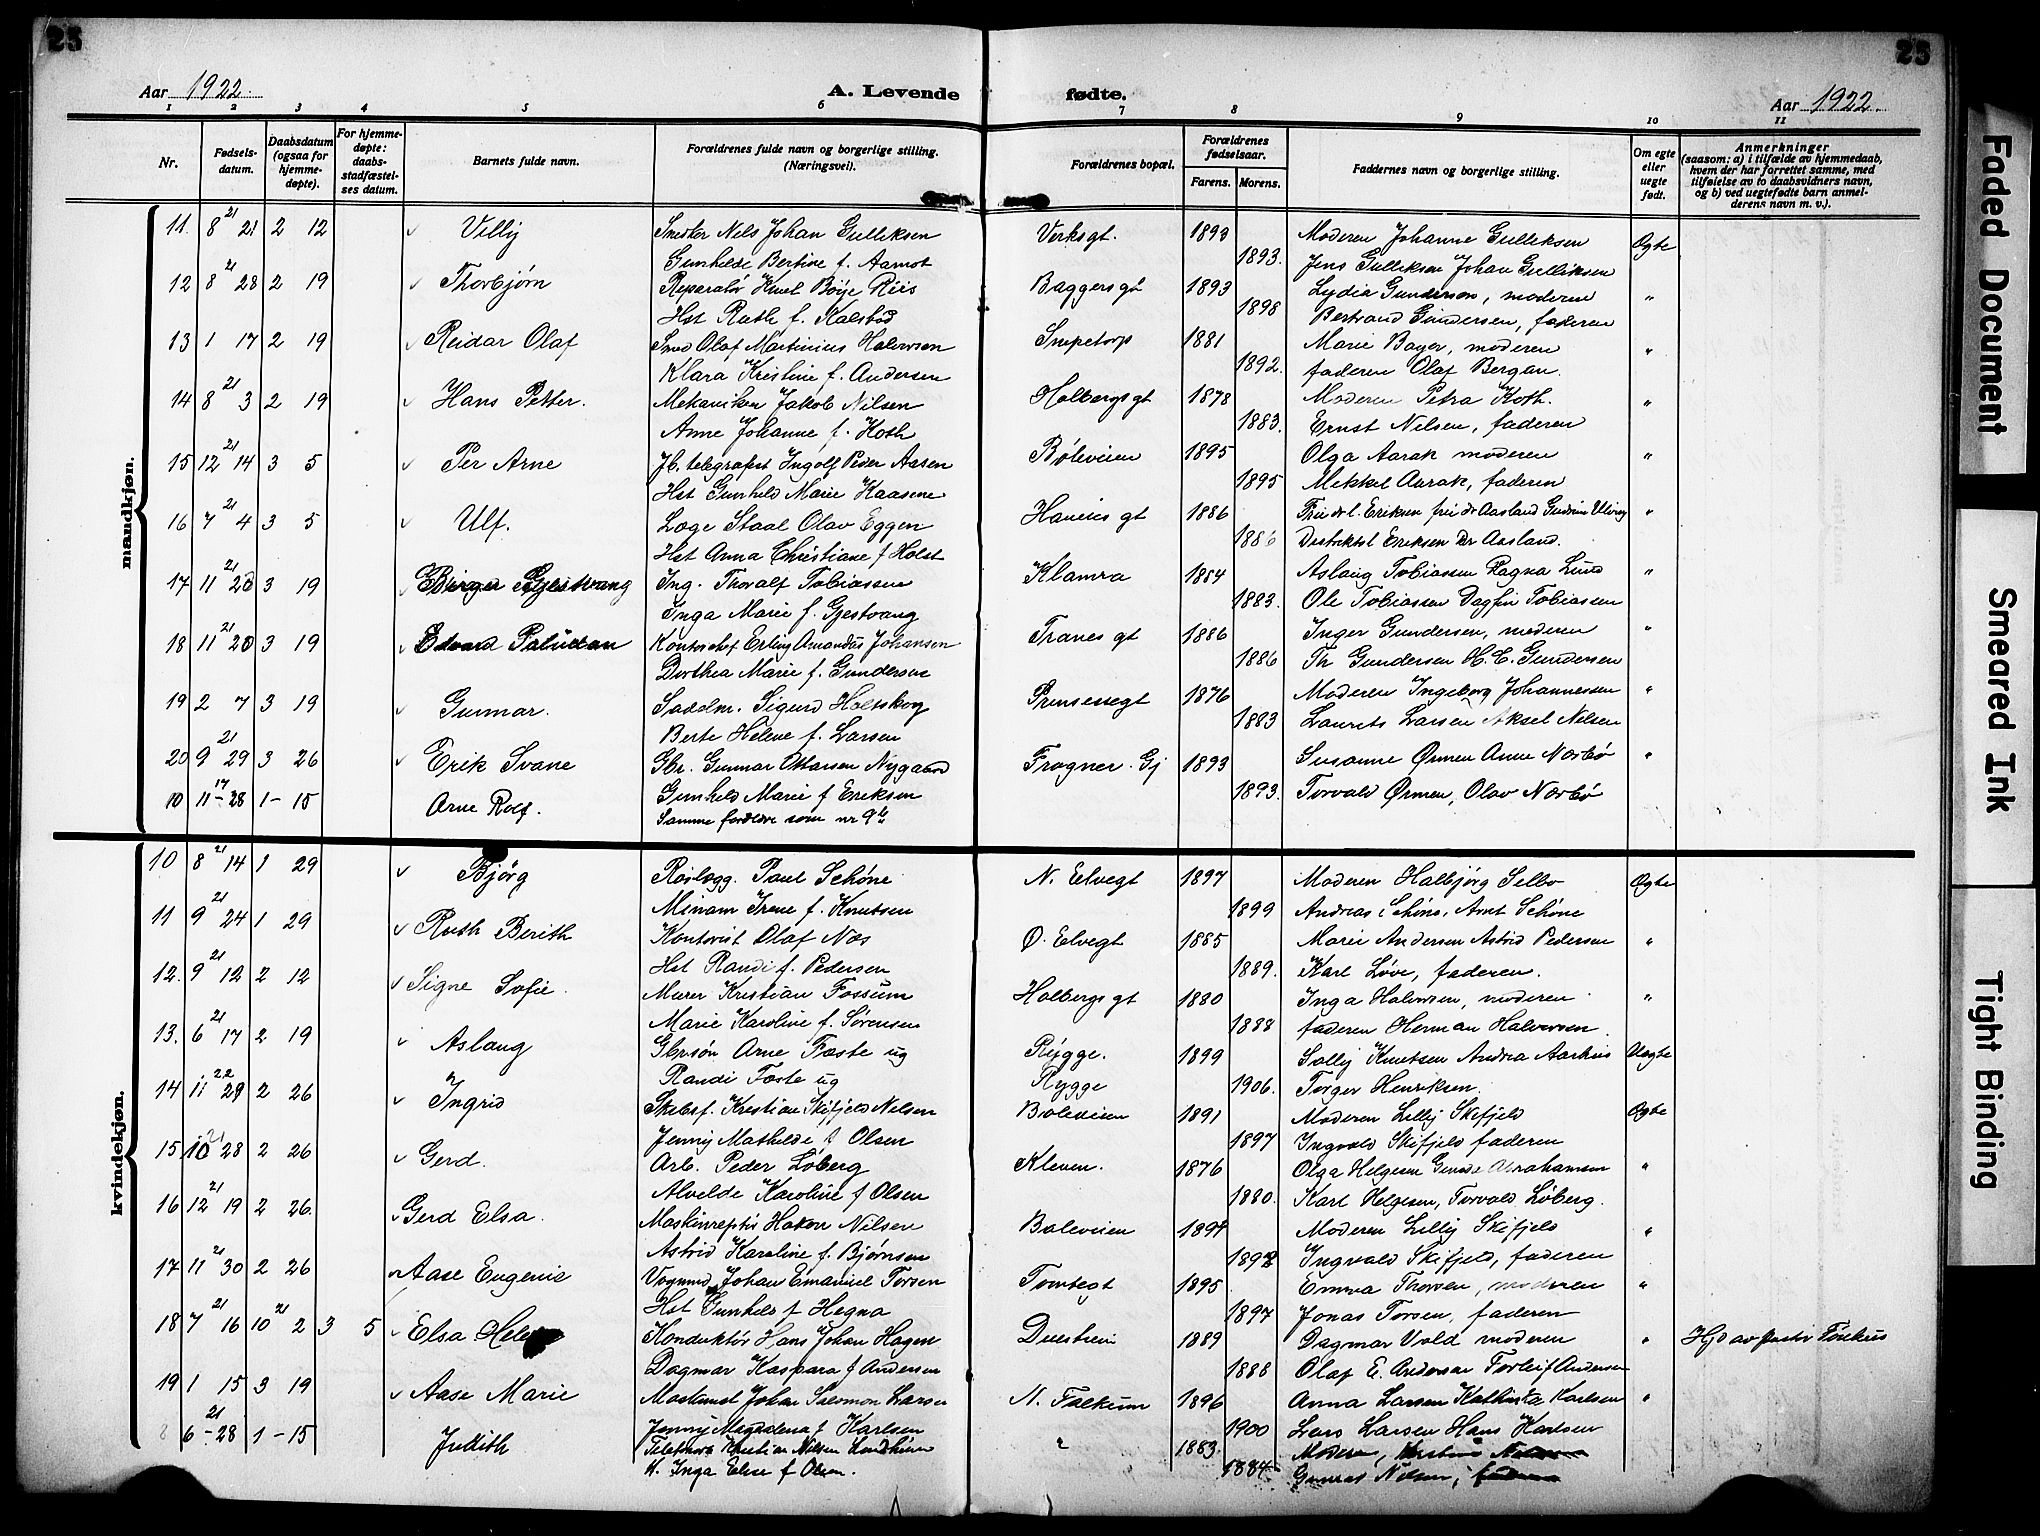 25
25
Aar 1922.
A. Levende
fødte.
Aar 1922.
1 2 3 4 5 6 7 8 9 10 11
Nr.
Fødsels-datum.
Daabsdatum (ogsaa for hjemme-døpte).
For hjemme-døpte: daabs-stadfæstel-ses datum.
Barnets fulde navn.
Forældrenes fulde navn og borgerlige stilling. (Næringsvei).
Forældrenes bopæl.
Forældrenes fødselsaar.
Farens. Morens.
Faddernes navn og borgerlige stilling.
Om egte eller uegte født.
Anmerkninger
(saasom: a) i tilfælde av hjemmedaab, hvem der har forrettet samme, med tilføielse av to daabsvidners navn, og b) ved uegtefødte barn anmel-derens navn m. v.).
mandkjøn.
11. 8 21 21 2 12 Villy Smester Nils Johan Gulliksen Verksgt. 1893 Moderen Johanne Gulliksen Egte
Gunhilde Bertine f. Aamot 1893. Jens Gulliksen Johan Gulliksen
12 8 21 28 2 19 Thorbjørn Reparatør Knut Bøije Riis Baggersgt 1893 Lydia Gundersen, moderen "
Hst Ruth f. Kalstad 1898 Bertrand Gundersen, faderen
13 1 17 2 19 Reidar Olaf Smed Olaf Martinius Halvorsen Snipetorp 1881 Marie Bayer, moderen "
Klara Kristine f. Andersen 1892. faderen Olaf Bergan.
14 8 21 3 2 19 Hans Petter. Mekaniker Jakob Nilsen Holbergsgt 1878 Moderen Petra Koth. "
Anne Johanne f. Koth 1883. Ernst Nilsen, faderen
15 12 21 14 3 5 Per Arne Jb. telegrafist Ingolf Peder Aasen Bøleveien 1895 Olga Aarak moderen "
Hst Gunhild Marie Kaasene 1895 Mikkel Aarak, faderen
16 7 21 4 3 5 Ulf. Læge Staal Olav Eggen 1886 "
Hst Anna Christiane f Holst 1886 Distriktsl Eriksen Dr Aasland.
17 11 21 20 3 19 Birger Gjestvang Ing. Thoralf Tobiassen Klamra 1884 Aslaug Tobiassen Ragna Lund "
Inga Marie f. Gjestvang 1883. Ole Tobiassen Dagfin Tobiassen
18 11 21 20 3 19 Edvard Paludan Kontorchef Erling Amandus Johansen Tranes gt 1886 Inger Gundersen, moderen "
Dorthea Marie f. Gundersen 1886 Th Gundersen H. C. Gundersen
19 2 7 3 19 Gunnar. Sadelm. Sigurd Holtskog Prinsessegt 1876 Moderen Ingeborg Johannessen "
Berte Helene f. Larsen 1883 Laurits Larsen Aksel Nilsen
20 9 21 29 3 26 Erik Svane Gbr. Gunnar Ottarsen Nygaard Frogner. Gj 1893 Susanne Ørmen Anne Norbø "
Gunhild Marie f Eriksen 1893. Torvald Ørmen, Olav Norbø
10 11 17 - 28 1 - 15 Arne Rolf. Samme forældre som nr 9
kvindekjøn.
10 8 21 14 1 29 Bjørg Rørlægg. Paul Schøne N. Elvegt 1897 Moderen Halbjørg Selbo Egte
Miriam Irene f. Knutsen 1899 Andreas Schøne, Arnt Schøne
11 9 21 24 1 29 Ruth Berith Kontorist Olaf Næs Ø. Elvegt 1885 Marie Andersen Astrid Pedersen "
Hst Randi f. Pedersen 1889. Karl Løve, faderen.
12. 9 21 12 2 12 Signe Sofie. Murer Kristian Fossum Holbergs gt 1880 Inga Halvorsen, moderen "
Marie Karoline f. Sørensen 1888 faderen Herman Halvorsen.
13. 6 21 17 2 19 Aslaug Gbr.søn Arne Fæste ug Rygge. 1899 Solly Knutsen Andrea Aarhus Uegte
Randi Fæste ug Rygge 1906. Torger Henriksen.
14 11 22 29 2 26 Ingrid Skibsf. Kristian Skifjeld Nilsen Bøleveien 1891 Moderen Lilly Skifjeld Egte
Jenny Mathilde f Olsen 1897 Ingvald Skifjeld faderen
15 10 21 28 2 26 Gerd. Arb. Peder Løberg Kleven. 1876 Olga Helgesen Abrahamsen "
Alvilde Karoline f Olsen 1880. Karl Helgesen, Torvald Løberg.
16 12 21 19 2 26. Gerd Elsa. Maskinreptr Hakon Nilsen Bøleveien 1894 Moderen Lilly Skifjeld "
Astrid Karoline f. Bjørnsen 1892 Ingvald Skifjeld, faderen
17 11 21 30 2 26 Aase Eugenie Vognmd Johan Emanuel Torsen Tomtegt 1895 Emma Thorsen, moderen "
Hst Gunhild f Hegna 1897 Jonas Torsen, faderen
18 7 21 16 10 21 2 3 5 Elsa Konduktør Hans Johan Hagen 1889 Dagmar Vold moderen " Hjd av pastor
Dagmar Kaspara f Andersen 1888 Olaf E. Andersen Torleif Andersen
19 1 15 3 19 Aase Marie Maskinist Johan Salomon Larsen N. Falkum 1896 Anna Larsen Kathinka Karlsen "
Jenny Magdalena f Karlsen 1900 Lars Larsen Hans Karlsen
6 21 - 28 1 - 15 Judith Kristian Nilsen " 1883. Moderen,
H. Inga Elise f Olsen. 1884 Gunnar Nilsen,
Faded Document
Smeared Ink
Tight Binding